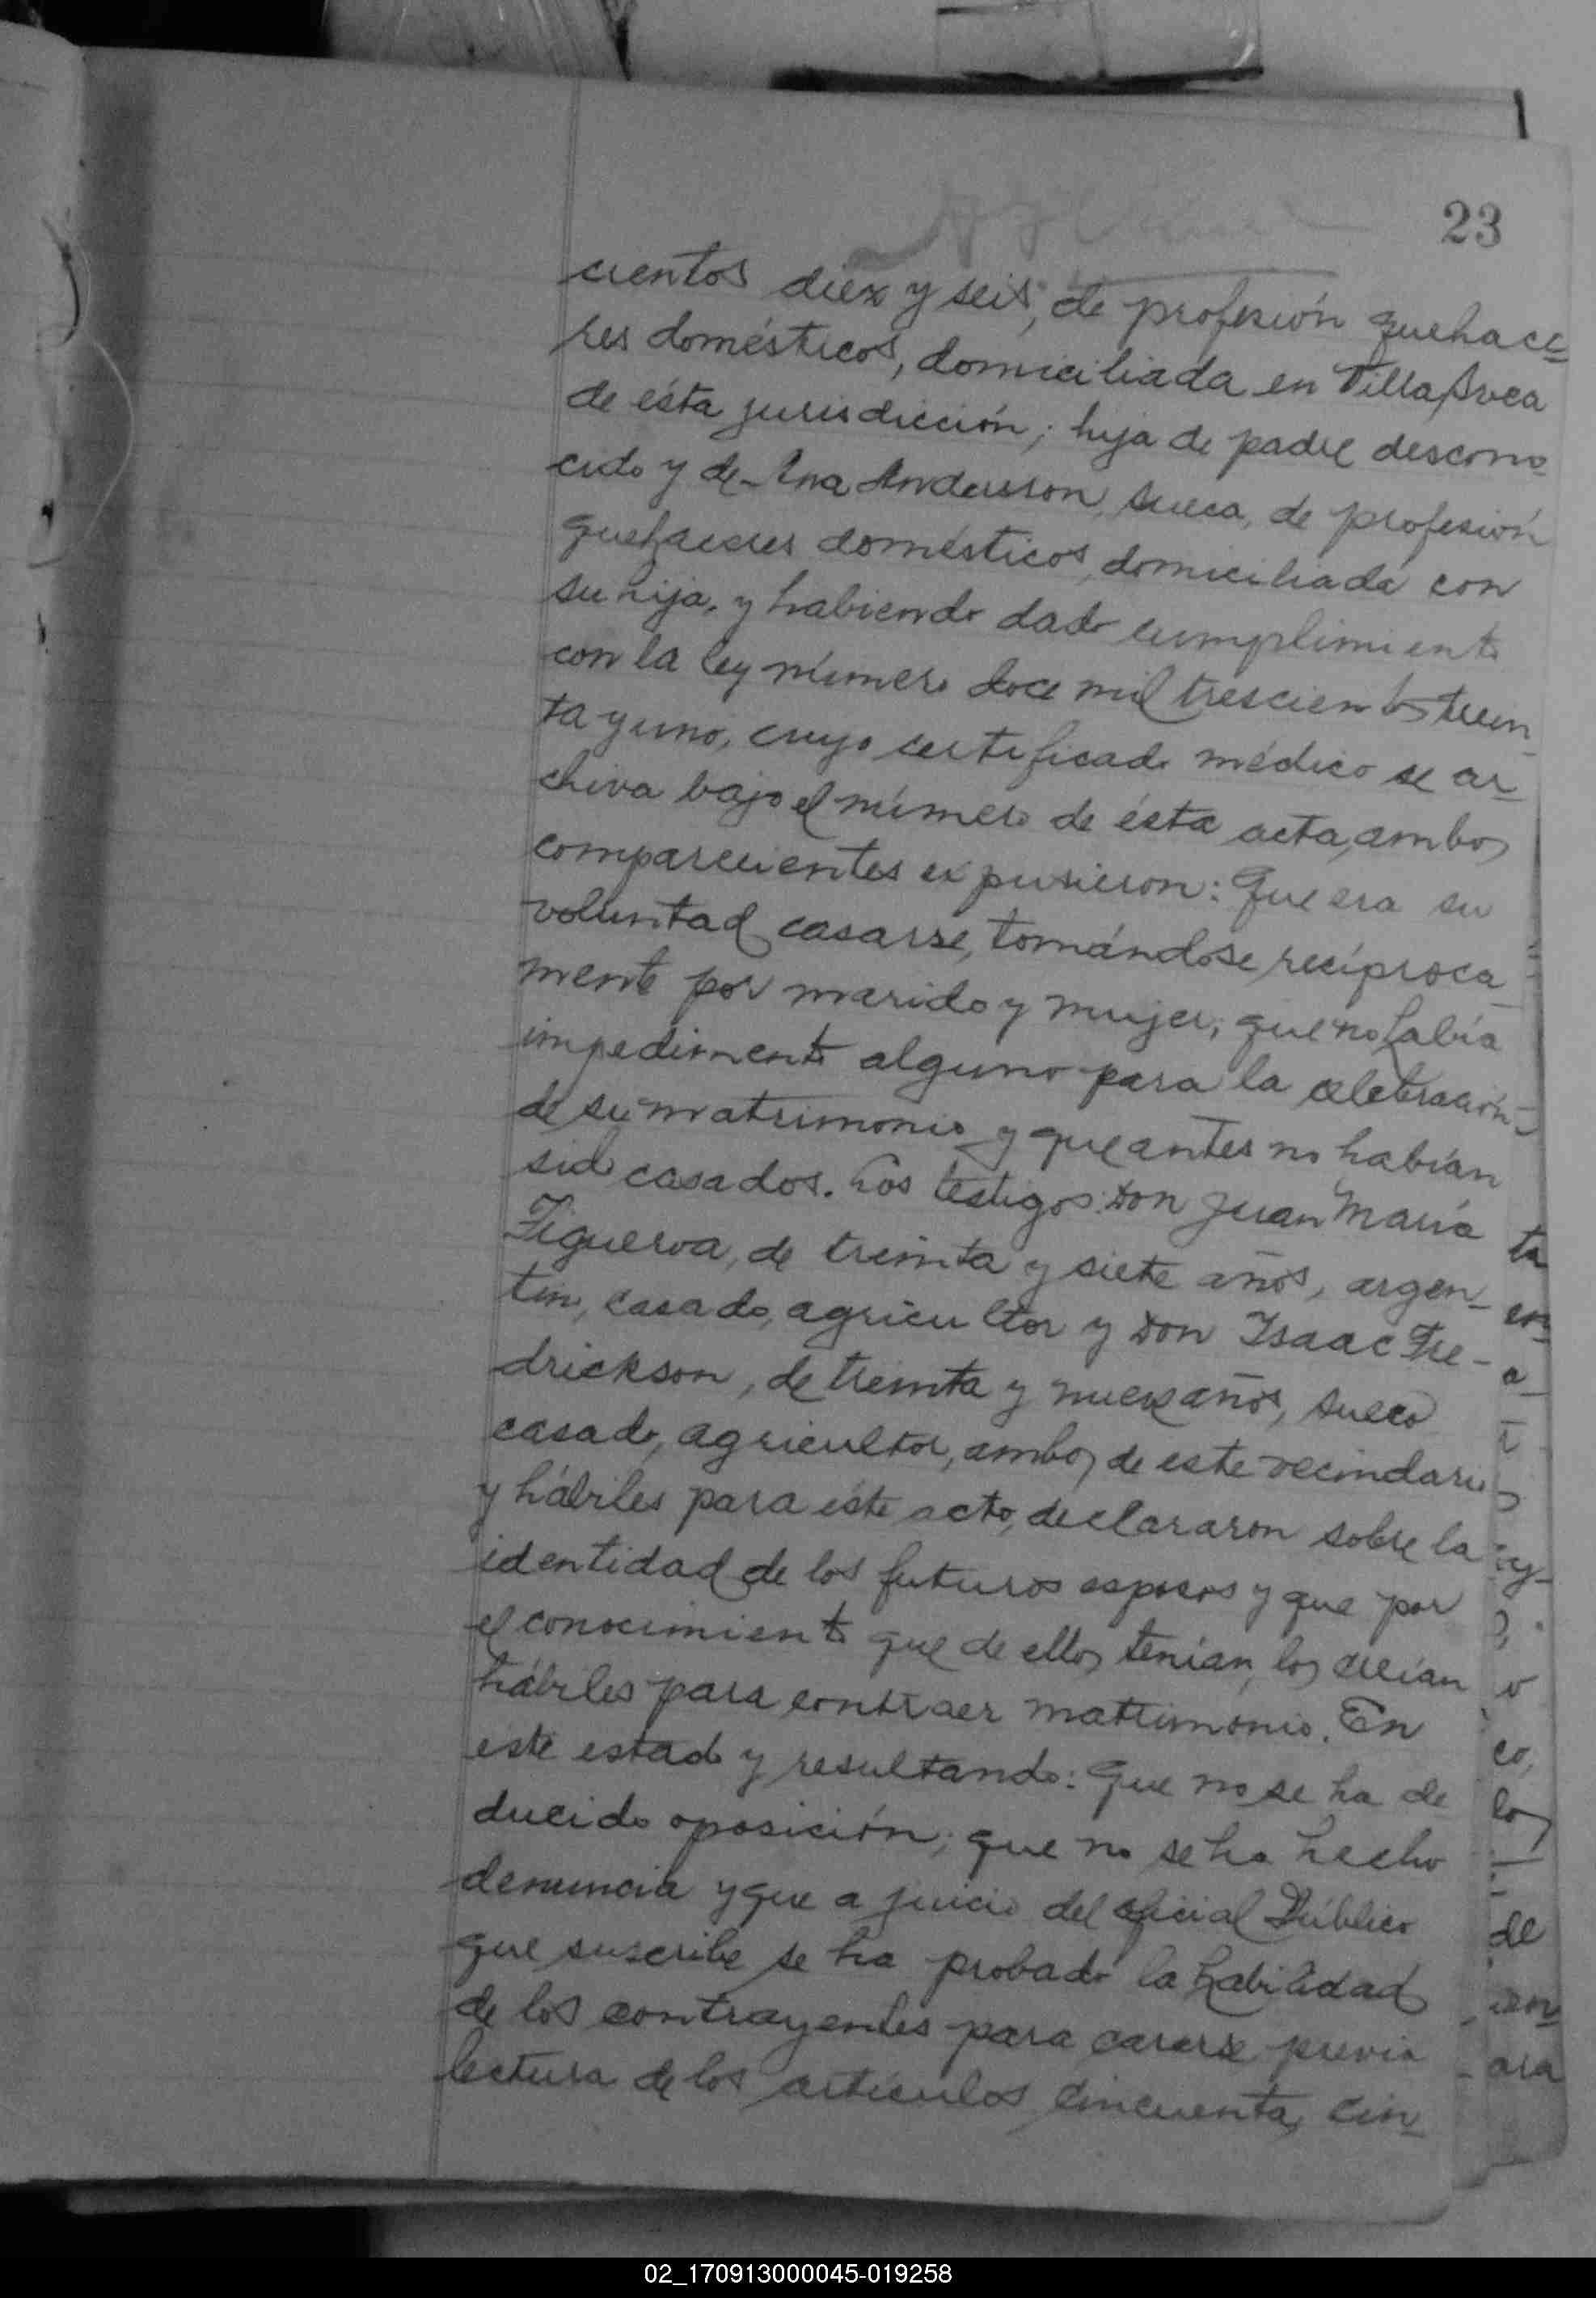 23
cientos diez y seis, de profesión quehace=
res domésticos, domiciliada en Villa Svea
de ésta jurisdicción; hija de padre descono=
cido y de Ana Andersson, sueca, de profesión
quehaceres domésticos, domiciliada con
su hija. y habiendo dado cumplimiento
con la ley número doce mil trescientos trein_
ta y uno, cuyo certificado médico se ar_
chiva bajo el número de ésta acta, ambos
comparecientes expusieron: Que era su
voluntad casarse, tomándose recíproca_
mente por marido y mujer; que no había
impedimento alguno para la celebración
de su matrimonio y que antes no habían
sido casados. Los testigos: Don Juan María
Figueroa, de treinta y siete años, argen_
tino, casado, agricultor y Don Isaac Fre-
drickson, de treinta y nueve años, sueco
casado, agricultor, ambos de este vecindario
y hábiles para éste acto, declararon sobre la
identidad de los futuros esposos y que por
el conocimiento que de ellos tenían, los creían
hábiles para contraer matrimonio. En
este estado y resultando: Que no se ha de
ducido oposición; que no se ha hecho
denuncia y que a juicio del oficial Público
que suscribe se ha probado la habilidad
de los contrayentes para casarse previa
lectura de los artículos cincuenta, cin_
02_170913000045-019258